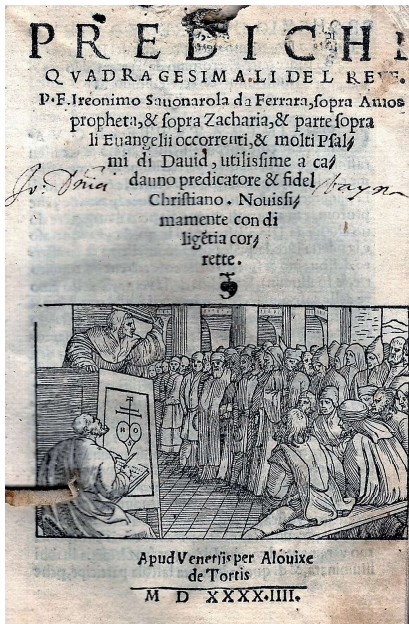 PREDICHE
QVADRAGESIMALI DEL REVE.
P.F. Ireonimo Sauonarola da Ferrara, sopra Amos
propheta, & sopra Zacharia, & parte sopra
li Euangelii occorrenti, & molti Psal⸗
mi di Dauid, utilissime a ca⸗
dauno predicatore & fidel
Christiano. Nouissi⸗
mamente con di
ligẽtia cor⸗
rette.
Apud Venetijs per Alouixe
de Tortis
M D XXXX.IIII.